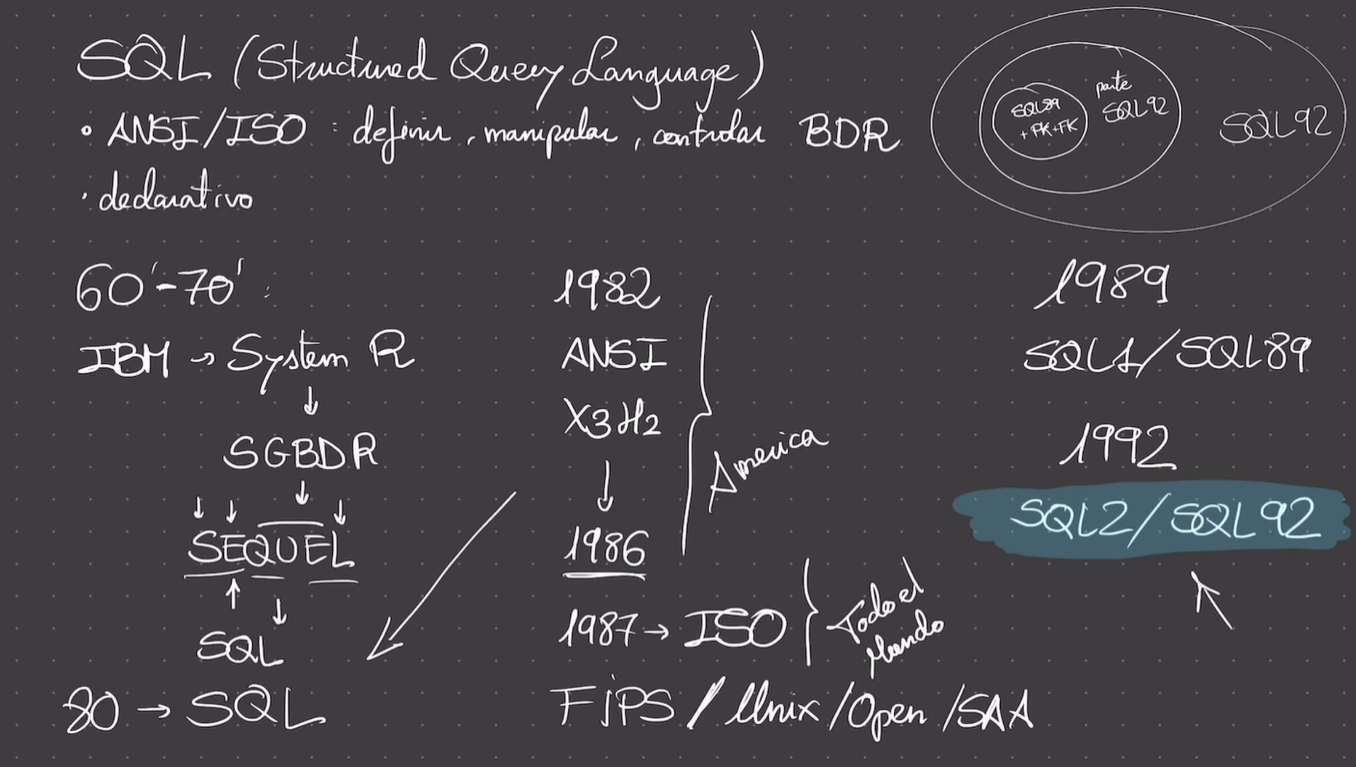 SQL (Structured Query Language)
• ANSI/ISO : definir, manipular, controlar BDR
• declarativo
SQL89
+ PK+FK
parte
SQL92
SQL92
60'-70' :
IBM → System R
↓
SGBDR
SEQUEL
SQL
80 → SQL
1982
ANSI
X3H2
↓
1986
America
1987 → ISO
Todo el
Mundo
FiPS / Unix / Open / SAA
1989
SQL1/SQL89
1992
SQL2/SQL92